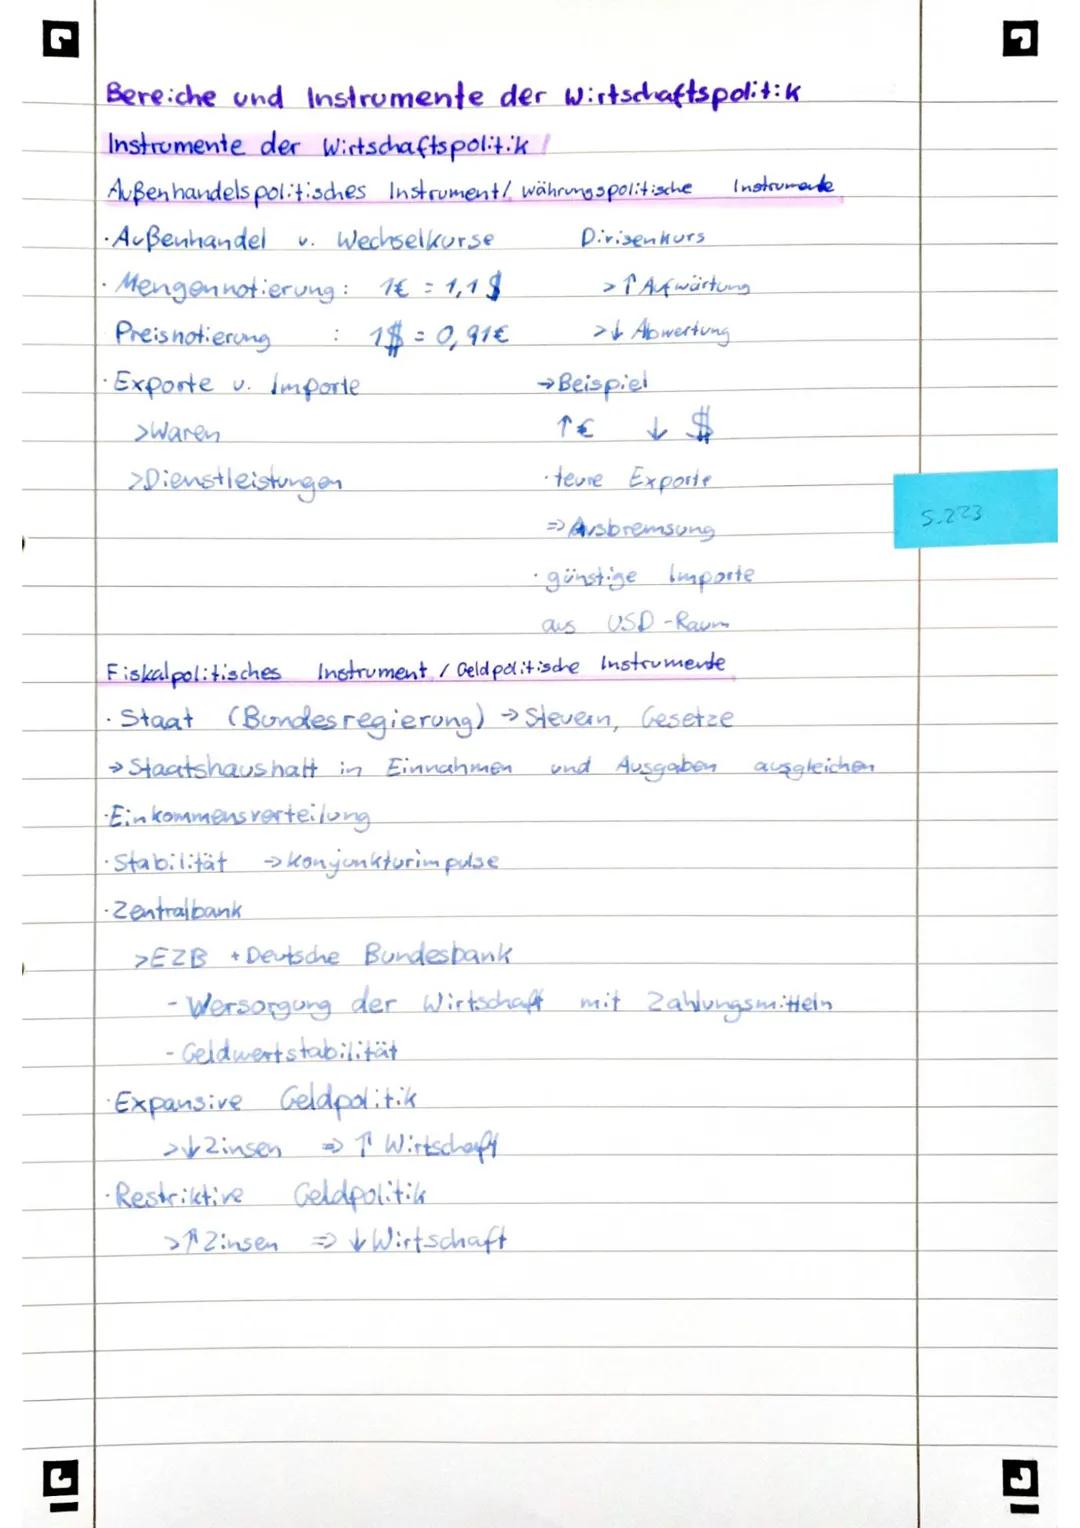 Bereiche und Instrumente der Wirtschaftspolitik
Instrumente der Wirtschaftspolitik!
Außenhandelspolitisches Instrument/ währungspolitische Instrumente
·Außenhandel u. Wechselkurse
Divisenkurs
·Mengennotierung: 1€ = 1,1$
>↑ Aufwärtung
Preisnotierung : 1$ = 0,91€
>↓ Abwertung
·Exporte u. Importe
→Beispiel
>Waren
↑€ ↓ $
>Dienstleistungen
·teure Exporte
S.223
⇒ Ausbremsung
·günstige Importe
aus USD-Raum
Fiskalpolitisches Instrument / Geldpolitische Instrumente
·Staat (Bundesregierung) → Steuern, Gesetze
→ Staatshaushalt in Einnahmen und Ausgaben ausgleichen
·Einkommensverteilung
·Stabilität → Konjunkturimpulse
·Zentralbank
>EZB + Deutsche Bundesbank
- Wersorgung der Wirtschaft mit Zahlungsmitteln
- Geldwertstabilität
·Expansive Geldpolitik
>↓Zinsen ⇒ ↑ Wirtschaft
·Restriktive Geldpolitik
>↑Zinsen ⇒ ↓Wirtschaft